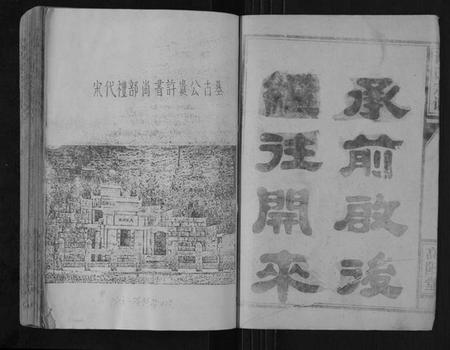 承前啟後
繼往開來
宋代禮部尚書許奠公古墓